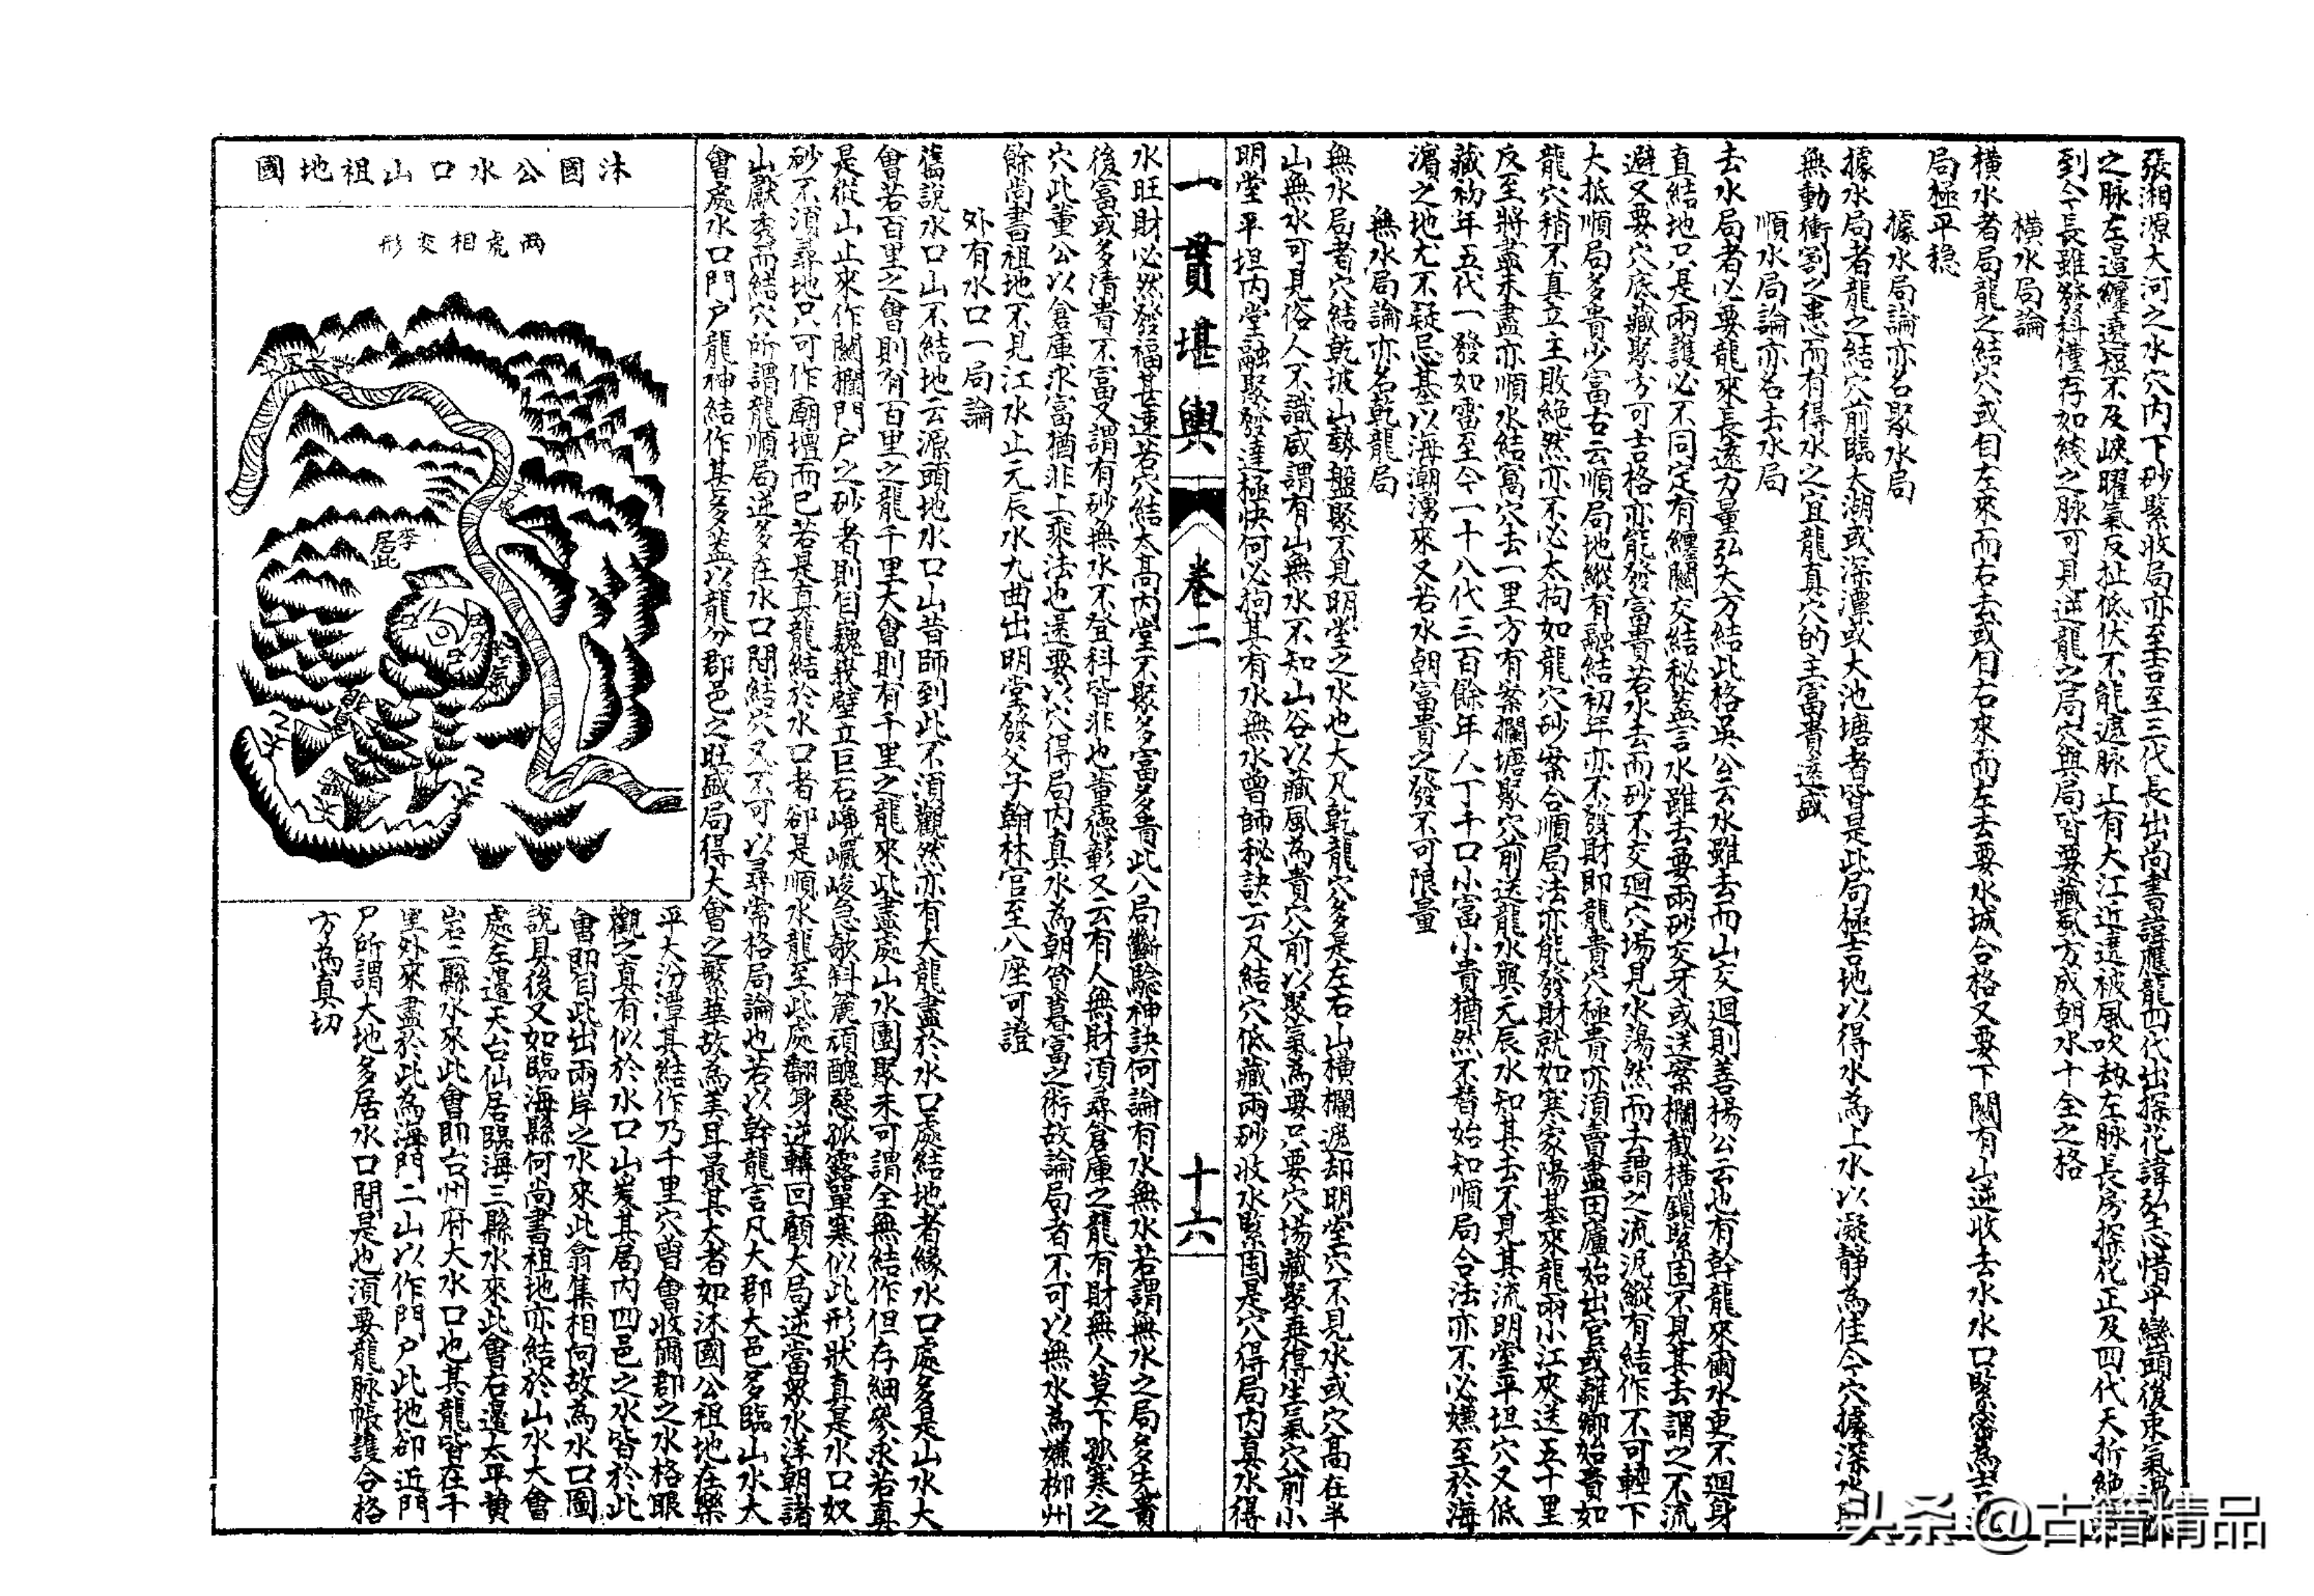 張湘源大河之水穴內下砂緊收局亦至吉至三代長出尚書諱應龍四代出探花諱弘志惜乎巒頭後束氣
之脉左邉纏遶短不及峽曜氣反扯低伏不能遮脉上有大江近遶被風吹劫左脉長房探花正及四代夭折絶
到今長雖發科僅存如綫之脉可見逆龍之局穴與局皆要藏風方成朝水十全之格
橫水局論
橫水者局龍之結穴或自左來而右去或自右來而左去要水城合格又要下關有山逆收去水水口緊密為吉
局極平穏
據水局論亦名聚水局
據水局者龍之結穴前臨大湖或深潭或大池塘者皆是此局極吉地以得水為上水以凝静為佳今穴據深水
無動衝割之患而有得水之宜龍真穴的主富貴遠盛
順水局論亦名去水局
去水局者必要龍來長遠力量弘大方結此格吳公云水雖去而山交迴則善楊公云也有幹龍來爾水更不迴身
直結地只是兩護必不同定有纏關交結秘蓋言水雖去要兩砂交牙或送案欄截橫鎖緊固不見其去謂之不流
避又要穴底藏聚方可吉格亦能發富貴若水去而砂不交迴穴場見水湯然而去謂之流況縱有結作不可輕下
大抵順局多貴少富古云順局地縱有融結初年亦不發財即龍貴穴極貴亦須賣盡田廬始出官或離鄉始貴如
龍穴稍不真立主敗絶然亦不必太拘如龍穴砂案合順局法亦能發財就如寒家陽基來龍兩小江夾送五十里
反至將盡未盡亦順水結窩穴去一里方有案欄塘聚穴前送龍水與元辰水知其去不見其流明堂平坦穴又低
藏初年五代一發如雷至今一十八代三百餘年人丁千口小富小貴猶然不替始知順局合法亦不必嫌至於海
濵之地尤不疑忌基以海潮湧來又若水朝富貴之發不可限量
無水局論亦名乾龍局
無水局者穴結乾坡山勢盤聚不見明堂之水也大凡乾龍穴多是左右山橫欄遮却明堂穴不見水或穴高在半
山無水可見俗人不識咸謂有山無水不知山谷以藏風為貴穴前以聚氣為要只要穴場藏聚乗得生氣穴前小
明堂平坦內堂融聚發達極快何必拘其有水無水曾師秘訣云凡結穴低藏兩砂收水緊固是穴得局內真水得
一貫堪輿
卷二
十六
水旺財必然發福甚速若穴結太高內堂不聚多富多貴此八局斷驗神訣何論有水無水若謂無水之局多先貴
後富或多清貴不富又謂有砂無水不登科皆非也董德彰又云有人無財須尋倉庫之龍有財無人莫下孤寒之
穴此董公以倉庫求富猶非上乘法也還要以穴得局內真水為朝貧暮富之術故論局者不可以無水為嫌柳州
餘尚書祖地不見江水止元辰水九曲出明堂發父子翰林官至八座可證
外有水口一局論
舊說水口山不結地云源頭地水口山昔師到此不須觀然亦有大龍盡於水口處結地者緣水口處多是山水大
會若百里之會則有百里之龍千里大會則有千里之龍來此盡處山水團聚未可謂全無結作但存細參求若真
是從山止來作關欄門戶之砂者則自巍峩壁立巨石崚巗峻急欹斜麄頑醜惡孤露單寒似此形狀真是水口奴
砂不須尋地只可作廟壇而已若是真龍結於水口者卻是順水龍至此處翻身逆轉回顧大局逆當衆水洋朝諸
山獻秀而結穴所謂龍順局逆多在水口間結穴又不可以尋常格局論也若以幹龍言凡大郡大邑多臨山水大
會處水口門戶龍神結作甚多蓋以龍分郡邑之旺盛局得大會之繁華故為美耳最其大者如沐國公祖地在樂
沐國公水口山祖地國
兩虎相交形
李居此
平大汾潭其結作乃千里穴曽會收爾郡之水格眼
觀之真有似於水口山爰其局內四邑之水皆於此
會即自此出兩岸之水來此翕集相向故為水口圖
說具後又如臨海縣何尚書祖地亦結於山水大會
處左邉天台仙居臨海三縣水來此會右邉太平黄
岩二縣水來此會即台州府大水口也其龍皆在千
里外來盡於此為海門二山以作門戶此地卻近門
戶所謂大地多居水口間是也須要龍脉帳護合格
方為真切
头条@古籍精品